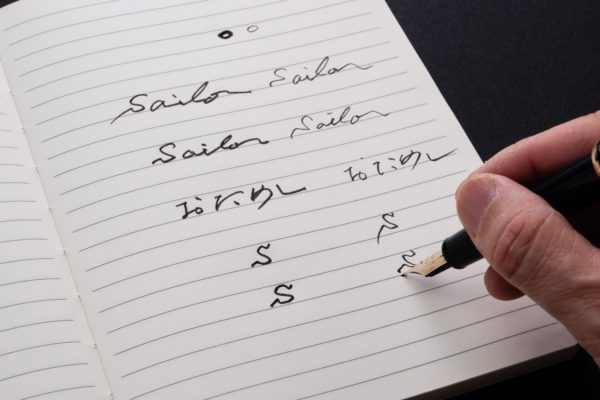 Sailor Sailor
Sailor Sailor
おためし おためし
S S
S S